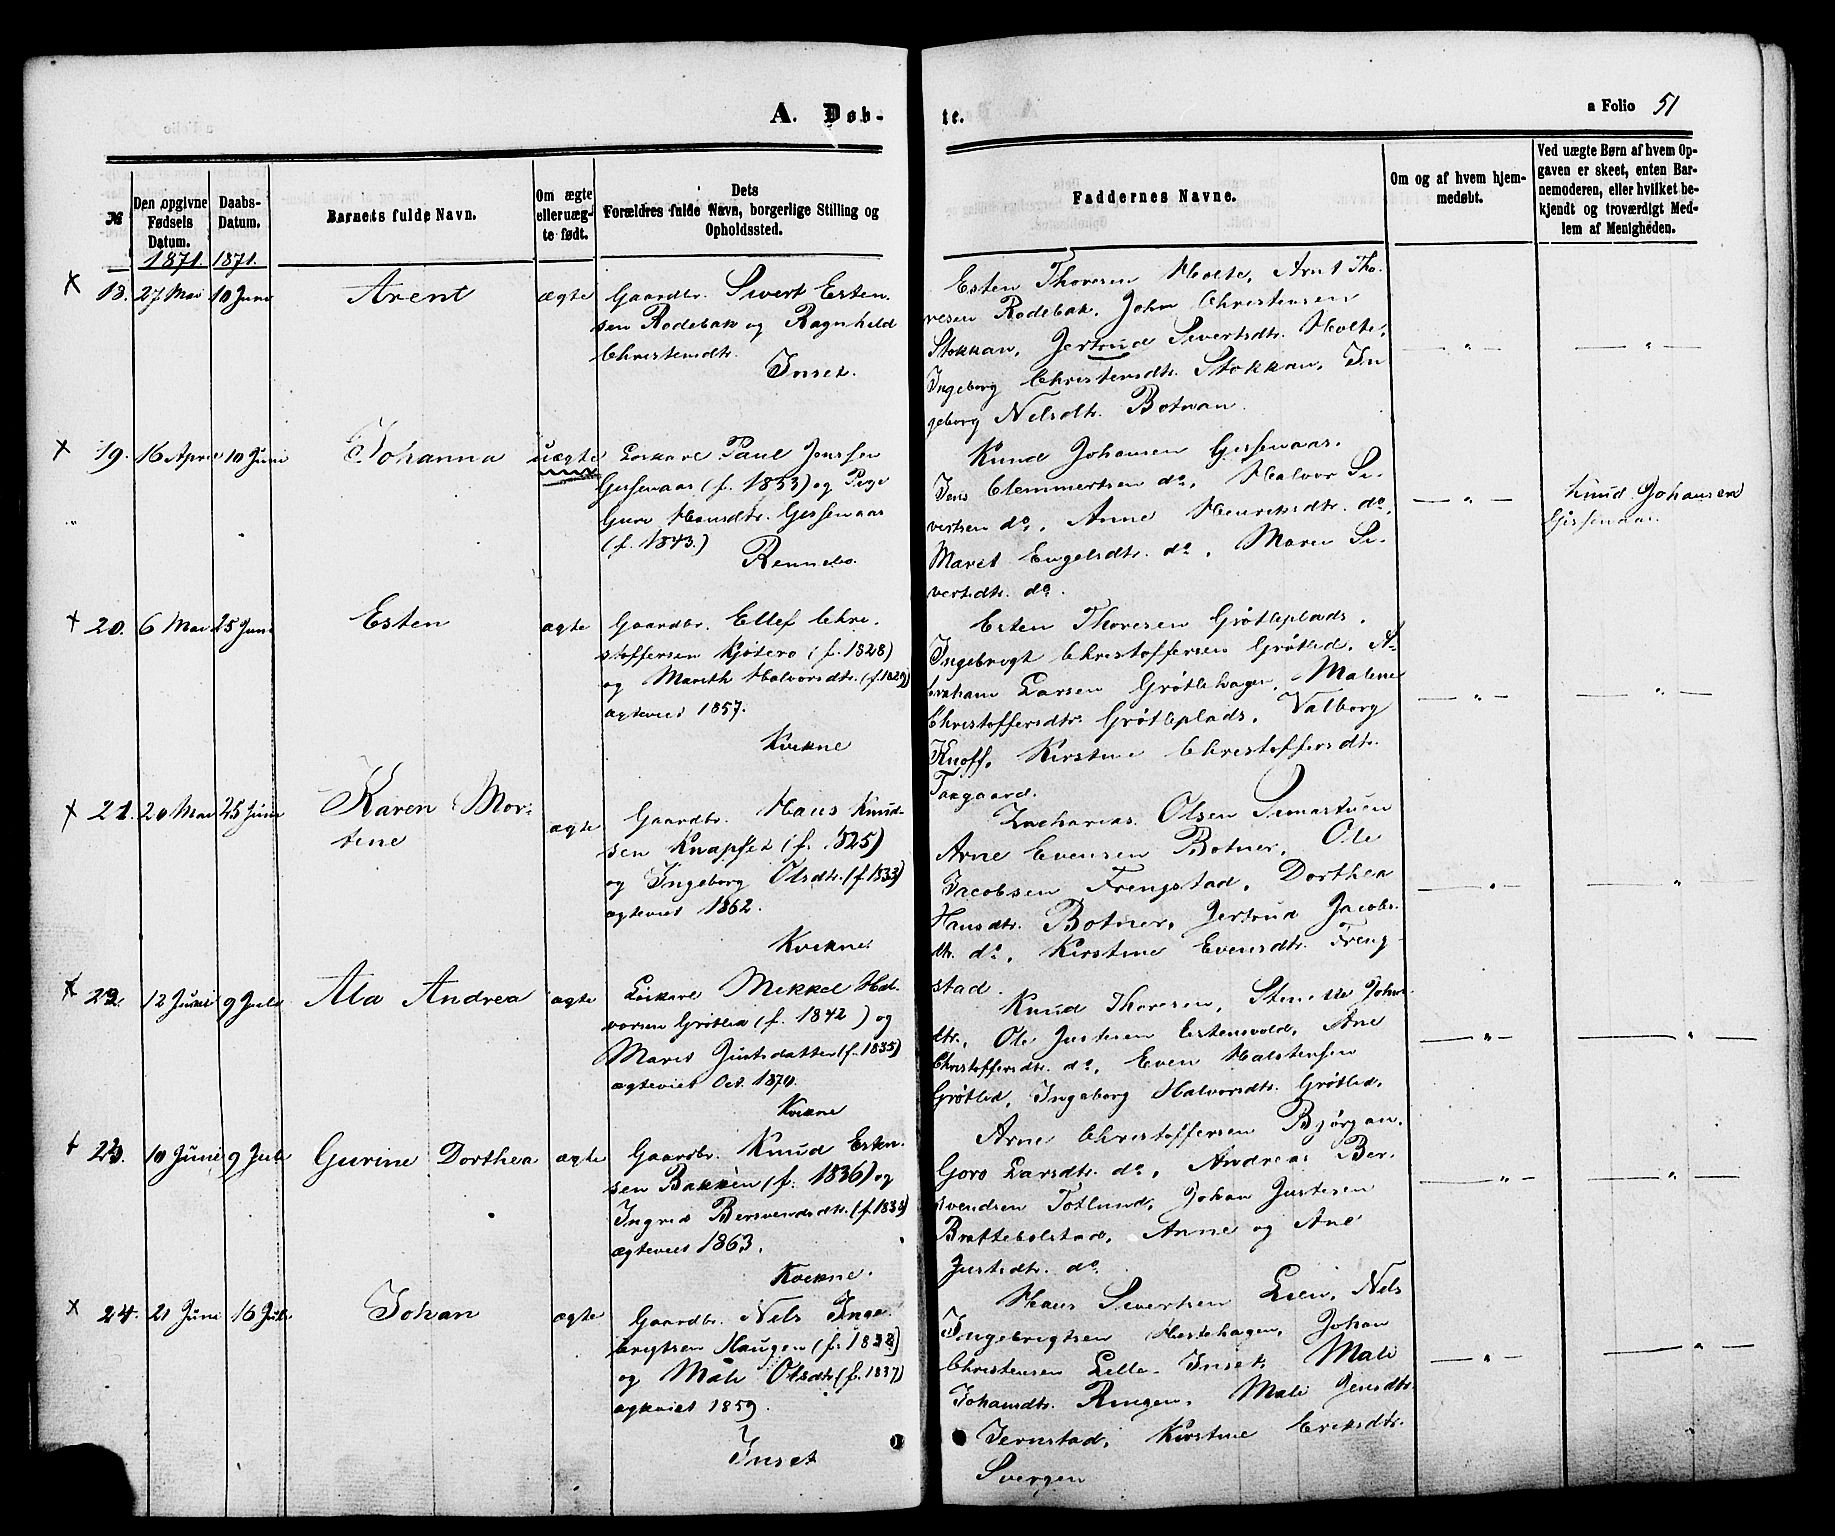 A. Døb-
te.
a Folio 51
№
Den opgivne Fødsels Datum.
Daabs-Datum.
Barnets fulde Navn.
Om ægte eller uæg-te født.
Dets Forældres fulde Navn, borgerlige Stilling og Opholdssted.
Faddernes Navne.
Om og af hvem hjem-medøbt.
Ved uægte Børn af hvem Op-gaven er skeet, enten Bar-nemoderen, eller hvilket be-kjendt og troværdigt Med-lem af Menigheden.
1871. 1871.
18. 27 Mai 10 Juni Arent ægte Gaardbr. Sivert Esten-
sen Rodebak og Ragnhild
Christensdtr.
Inset.
Esten Thoresen Holte, Arnt Tho-
resen Rodebak, John Christensen
Stokkan, Jertrud Sivertsdtr. Holte,
Ingeborg Christensdtr. Stokkan, In
geborg Nelsdtr. Botnan.
19. 16 April 10 Juni Johanna uægte Løskarl Paul Jenssen
Gissenaas (f. 1853) og Pige
Guru Hansdtr. Gissenaas
(f. 1843.)
Rennebo.
Knud Johansen Gissenaas.
Jens Clemmertsen do, Halvor Si-
vertsen do, Anne Henriksdtr. do,
Marit Engelsdtr. do, Maren Si-
vertsdtr. do.
Knud Johansen
Gissenaas.
20. 6 Mai 25 Juni Esten ægte Gaardbr. Ellef Chri-
stoffersen Kjøterø (f. 1828)
og Marith Halvorsdtr. (f. 1829)
ægteviet 1857.
Kvikne
Esten Thoresen Grøtliplads,
Ingebrigt Christoffersen Grøtlid, A-
braham Larsen Grøtlihagen, Malene
Christoffersdtr. Grøtliplads, Valborg
Knoff, Kirstine Christoffersdtr.
Taagaard.
21. 20 Mai 25 Juni Karen Mor-
tine
ægte Gaardbr. Hans Knud-
sen Knapfet (f. 1825)
og Ingeborg Olsdtr. (f. 1833)
ægteviet 1862.
Kvikne
Zacharias Olsen
Arne Evensen Botner, Ole
Jacobsen Frengstad, Dorthea
Hansdtr. Botner, Jertrud Jacobs-
dtr. do, Kirstine Evensdtr. Freng-
stad.
22. 12 Juni 9 Juli Ala Andrea ægte Løskarl Mikkel Hal-
vorsen Grøtlid (f. 1842) og
Marit Justsdatter (f. 1835)
ægteviet Oct. 1870.
Kvikne
Knud Thoresen, Johns-
dtr., Ole Justesen Estensvold, Ane
Christoffersdtr. do, Even Halstensen
Grøtlid, Ingeborg Halvorsdtr. Grøtlid.
23. 10 Juni 9 Juli Gurine Dorthea ægte Gaardbr. Knud Esten-
sen Bakken (f. 1836) og
Ingrid Bersvendsdtr. (f. 1838)
ægteviet 1863.
Kvikne.
Arne Christoffersen Bjørgan,
Goro Larsdtr. do, Andreas Ber-
svendsen Totlund, Johan Justesen
Brattebolstad, Anne og Ane
Justsdtr. do.
24. 21 Juni 16 Juli Johan ægte Gaardbr. Nils Inge-
brigtsen Haugen (f. 1828)
og Mali Olsdtr. (f. 1837)
ægteviet 1859.
Inset
Hans Sivertsen Lien, Nils
Ingebrigtsen Hestehagen, Johan
Christensen Lille-Inset, Mali
Johansdtr. Ringen, Mali Jensdtr.
Jernstad, Kirstine Eriksdtr.
Svergen